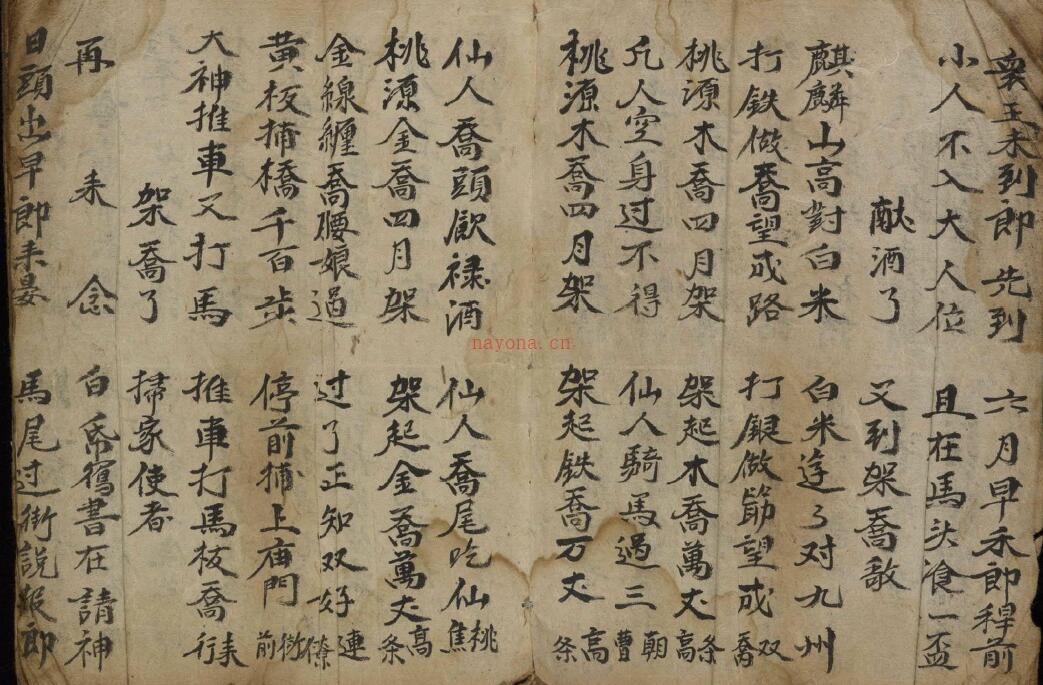 王未到郎先到 六月早禾郎稈前
小人不入大人位 且在馬头飡一盃
献酒了 又到架喬敬
麒麟山高對白米 白米对九州
打铁做喬望成路 打銀做節望成双喬
桃源木喬四月架 架起木喬萬丈高条
凡人空身过不得 仙人騎馬過三朝曹
桃源木喬四月架 架起铁喬万丈高条
仙人喬頭飲禄酒 仙人喬尾吃仙桃焦
桃源金喬四月架 架起金喬萬丈高条
金線纏喬腰娘過 过了正知双好連
黄板捕橋千百步 停前捕上庙門前
大神推車又打馬 推車打馬板喬行
架喬了 掃家使者
再来念 白帋寫書在請神
日頭出早郎来晏 馬尾过街說报郎
nayona.cn